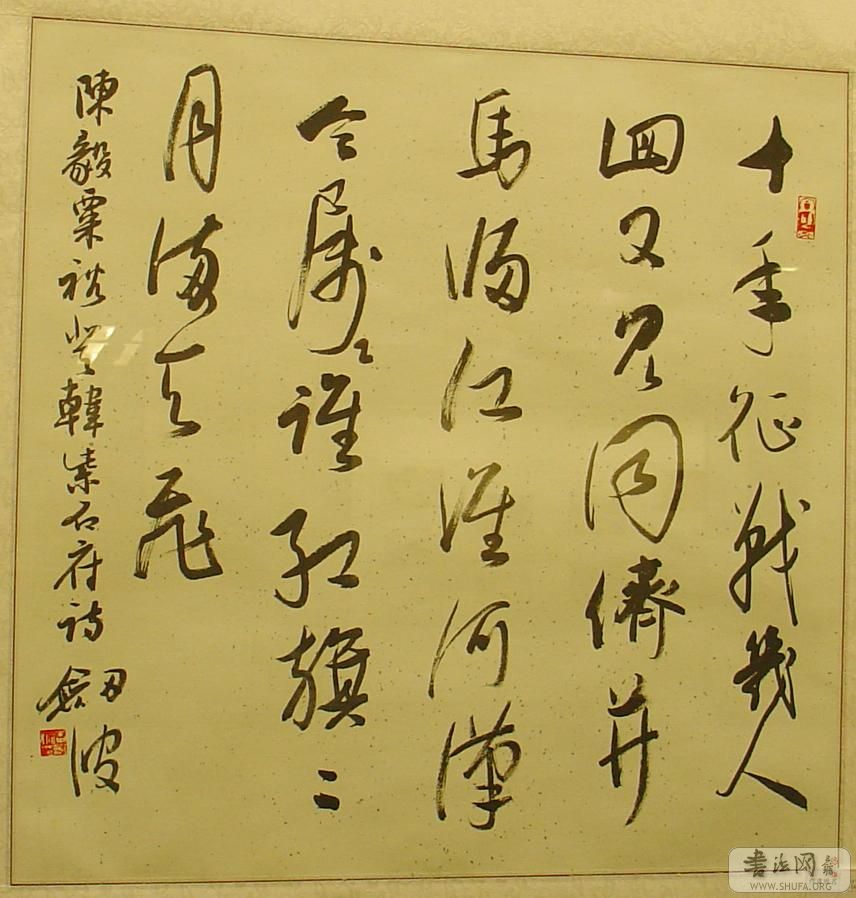 十年征戰幾人
回又見同儕并
馬歸江淮河漢
今屬誰紅旗二
月滿天飛
陳毅粟裕登韓紫石府詩 劍波
書法网
WWW.SHUFA.ORG